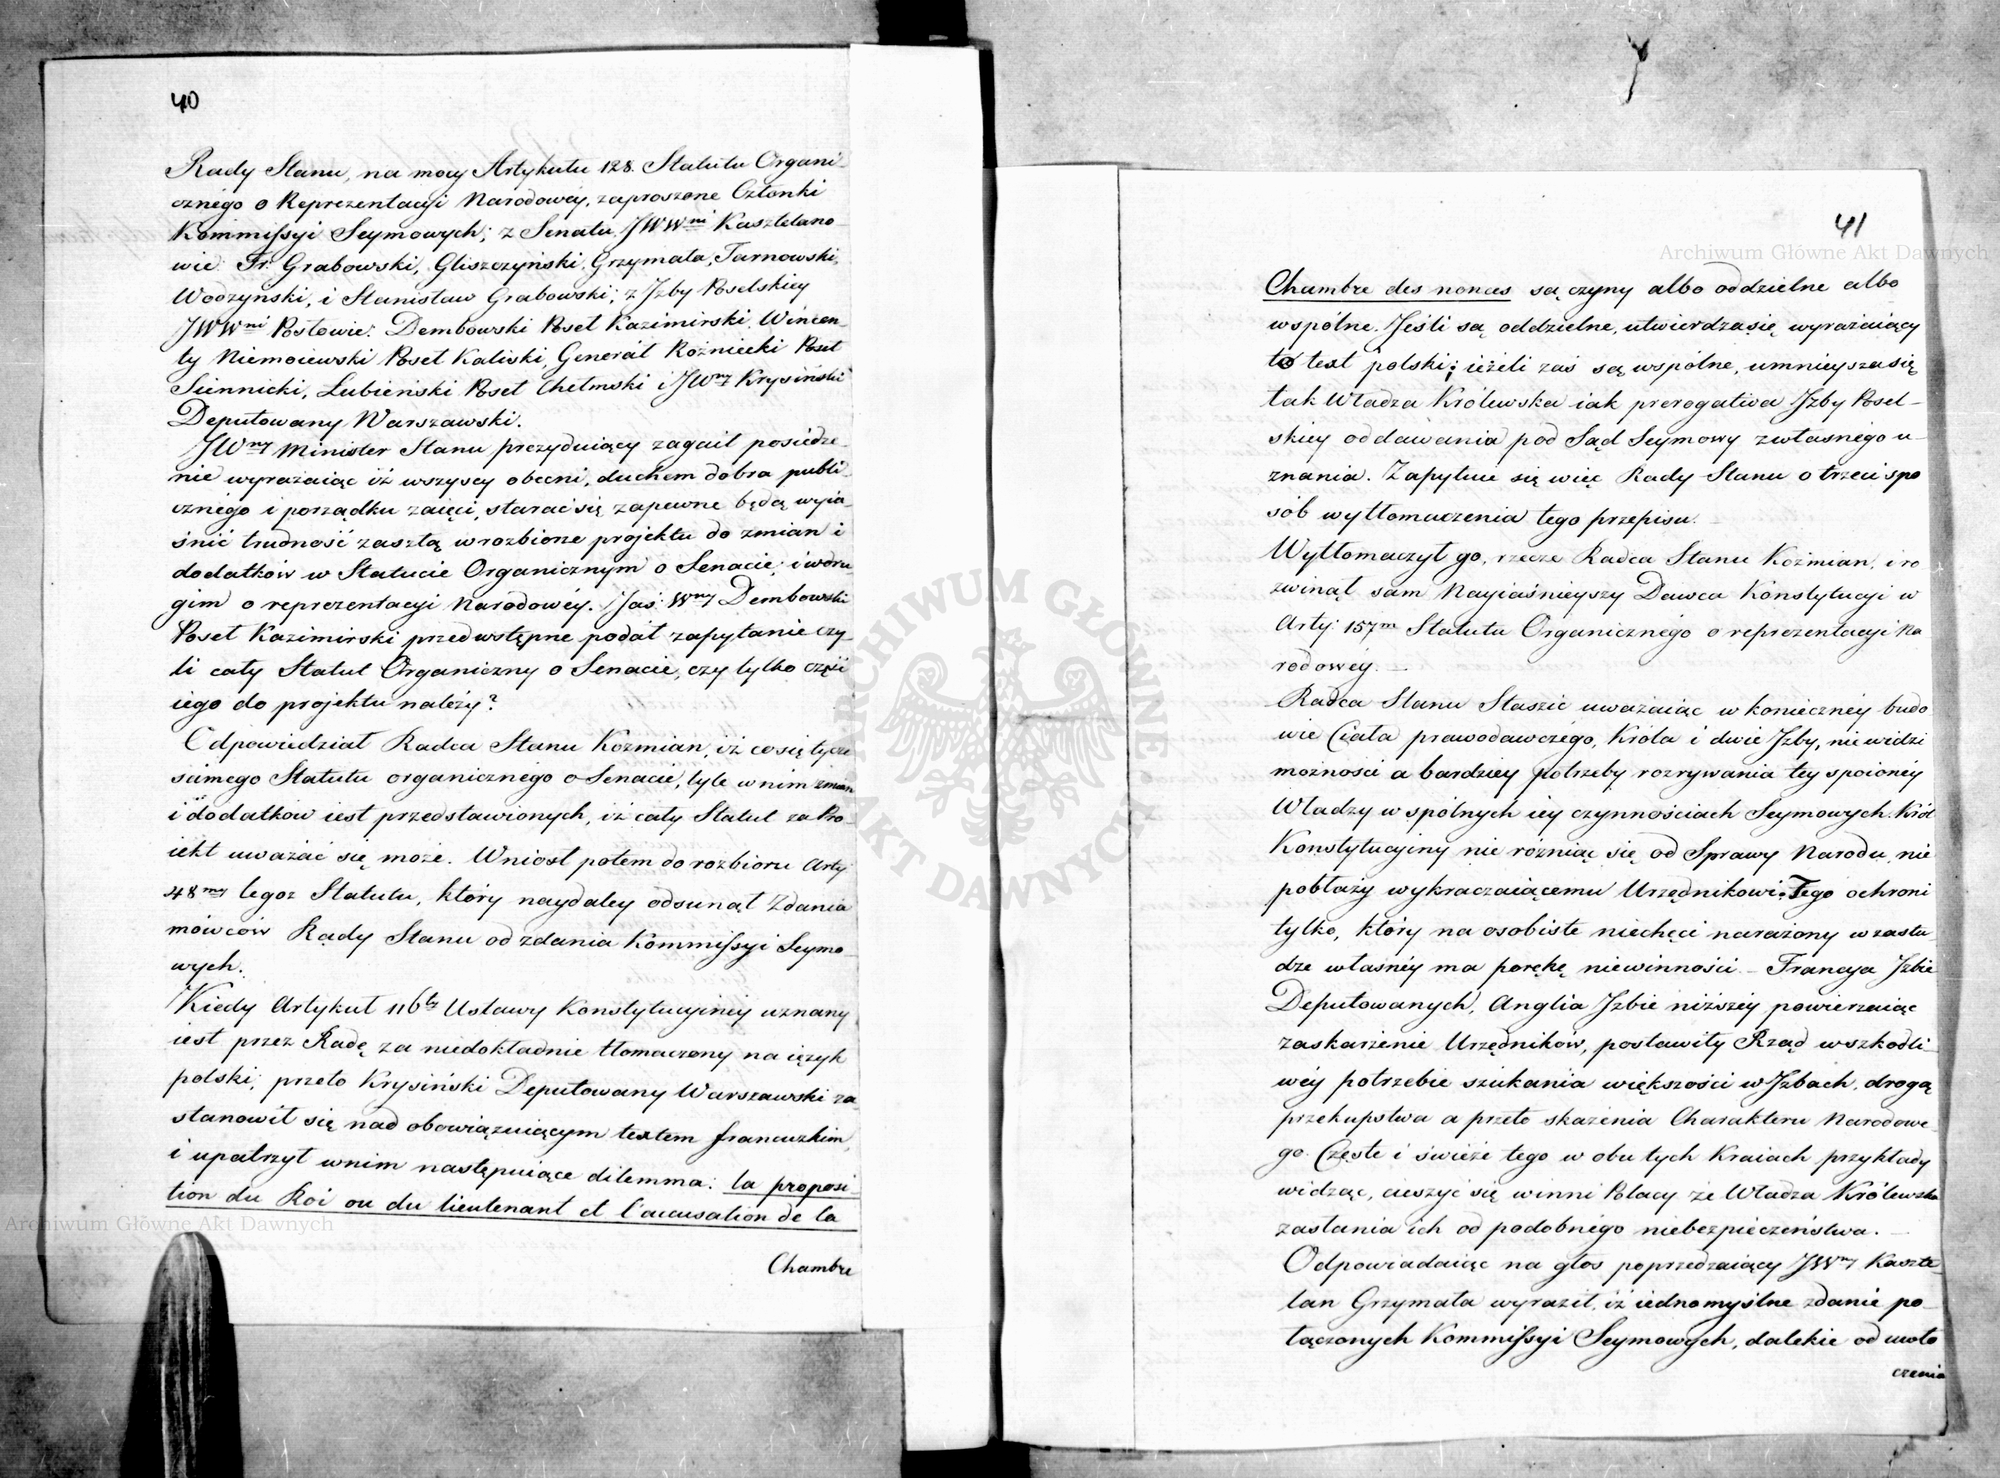 40
Rady Stanu, na mocy Artykułu 128. Statutu Organi-
cznégo o Reprezentacyi Narodowéy, zaproszone Członki
Kommissyi Seymowych; z Senatu JWWni Kasztelano-
wie: Fr: Grabowski, Gliszczyński, Grzymała, Tarnowski,
Wodzyński, i Stanisław Grabowski; z Jzby Poselskiey
JWWni Posłowie: Dembowski Poseł Kazimirski, Wincen-
ty Niemoiewski Poseł Kaliski, Generał Rożniecki Poseł
Siennicki, Łubieński Poseł Chełmski i JWny Krysiński
Deputowany Warszawski.
JWny Minister Stanu prezyduiący zagaił posiedze-
nie wyrażaiąc iż wszyscy obecni, duchem dobra publi-
cznégo i porządku zaięci, starać się zapewne będą wyia-
śnić trudność zaszłą w rozbiorze projektu do zmian i
dodatków w Statucie Organicznym o Senacie; i w dru-
gim o reprezentacyi Narodowéy. Jaś: Wny Dembowski
Poseł Kazimirski przedwstępne podał zapytanie czy-
li cały Statut Organiczny o Senacie, czy tylko część
iego do projektu należy?
Odpowiedział Radca Stanu Kozmian, iż co się tycze
samego Statutu organicznégo o Senacie, tyle w nim zmian
i dodatków iest przedstawionych, iż cały Statut za Pro-
iekt uważać się może. Wniosł potem do rozbioru Arty:
48my tegoż Statutu, który naydaley odsunął Zdania
mówców Rady Stanu od zdania Kommissyi Seymo-
wych.
Kiedy Artykuł 116ty Ustawy Konstytucyinéy uznany
iest przez Radę za niedokładnie tłomaczony na ięzyk
polski; przeto Krysiński Deputowany Warszawski za-
stanowił się nad obowiązuiącym textem francuzkim,
i upatrzył w nim następuiące dilemma: la proposi-
tion du Roi ou du lieutenant et l'accusation de la
Chambre
41
Chambre des nonces są czyny albo oddzielne albo
wspólne. Jeśli są oddzielne, utwierdza się wyrażaiący
to text polski; ieżeli zaś są wspólne, umnieysza się
tak Władza Królewska iak prerogatiwa Jzby Posel-
skiey oddawania pod Sąd Seymowy z własnego u-
znania. Zapytuie się więc Rady Stanu o trzeci spo
sób wytłomaczenia tego przepisu.
Wytłomaczył go, rzecze Radca Stanu Koźmian, i ro
zwinął sam Nayiaśnieyszy Dawca Konstytucyi w
Arty: 157m Statutu Organicznégo o reprezentacyi Na
rodowéy. —
Radca Stanu Staszic uważaiąc w konieczney budo
wie Ciała prawodawczégo, Króla i dwie Jzby, nie widzi
możności a bardziey potrzeby rozrywania tey spoionéy
Władzy w spólnych iéy czynnościach Seymowych. Król
Konstytucyiny nie różniąc się od Sprawy Narodu, nie
pobłaży wykraczaiącemu Urzędnikowi. Tego ochroni
tylko, który na osobiste niechęci narażony w zasłu-
dze własnéy ma porękę niewinności — Francya Jzbie
Deputowanych, Anglia Jzbie niższéy powierzaiąc
zaskarżenie Urzędników, postawiły Rząd w szkodli-
wéy potrzebie szukania większości w Jzbach, drogą
przekupstwa a przeto skażenia Charakteru Narodowe-
go. Częste i świeże tego w obu tych Kraiach przykłady
widząc, cieszyć się winni Polacy że Władza Królewska
zasłania ich od podobnégo niebezpieczeństwa. —
Odpowiadaiąc na głos poprzedzaiący JWny Kaszte-
lan Grzymała wyraził, iż iednomyślne zdanie po-
łączonych Kommissyi Seymowych, dalekie od uwło
czenia
Archiwum Główne Akt Dawnych
Archiwum Główne Akt Dawnych
ARCHIWUM GŁÓWNE AKT DAWNYCH